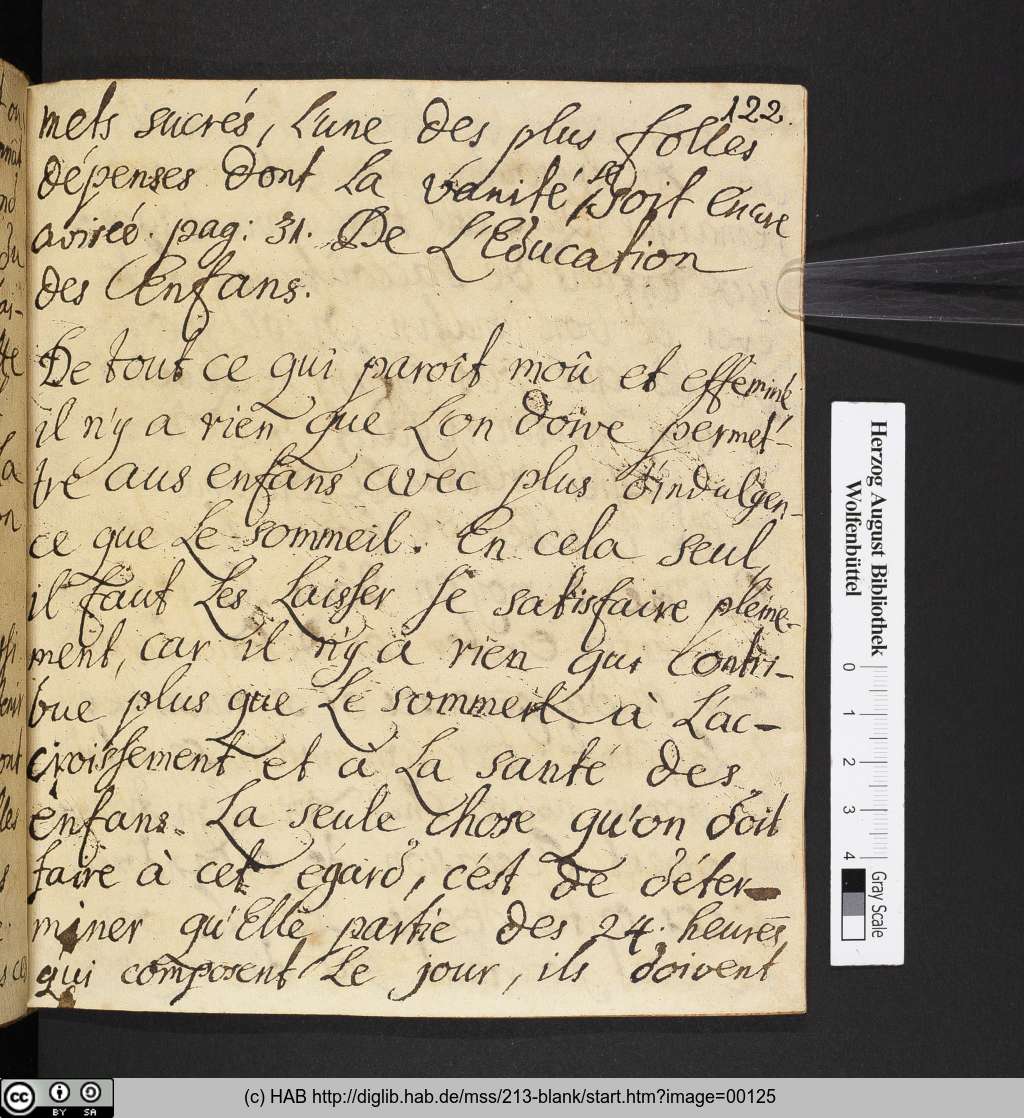 122.
mets sucrés, L'une des plus folles
dépenses dont la vanité se soit encore
avisée. pag: 31. De L'Education
des Enfans.
De tout ce qui paroît moû et effeminé
il n'y a rien que L'on doive permet-
tre aus enfans avec plus d'indulgen-
ce que Le sommeil. En cela seul,
il faut Les Laisser se satisfaire pleine-
ment, car il n'y a rien qui contri-
bue plus que Le sommeil à L'ac-
croissement et à La santé des
enfans. La seule chose qu'on doit
faire à cet égard, c'est de déter-
miner qu'Elle partie des 24. heures
qui composent Le jour, ils doivent
Herzog August Bibliothek
Wolfenbüttel
0 1 2 3 4
Gray Scale
cc BY SA
(c) HAB http://diglib.hab.de/mss/213-blank/start.htm?image=00125